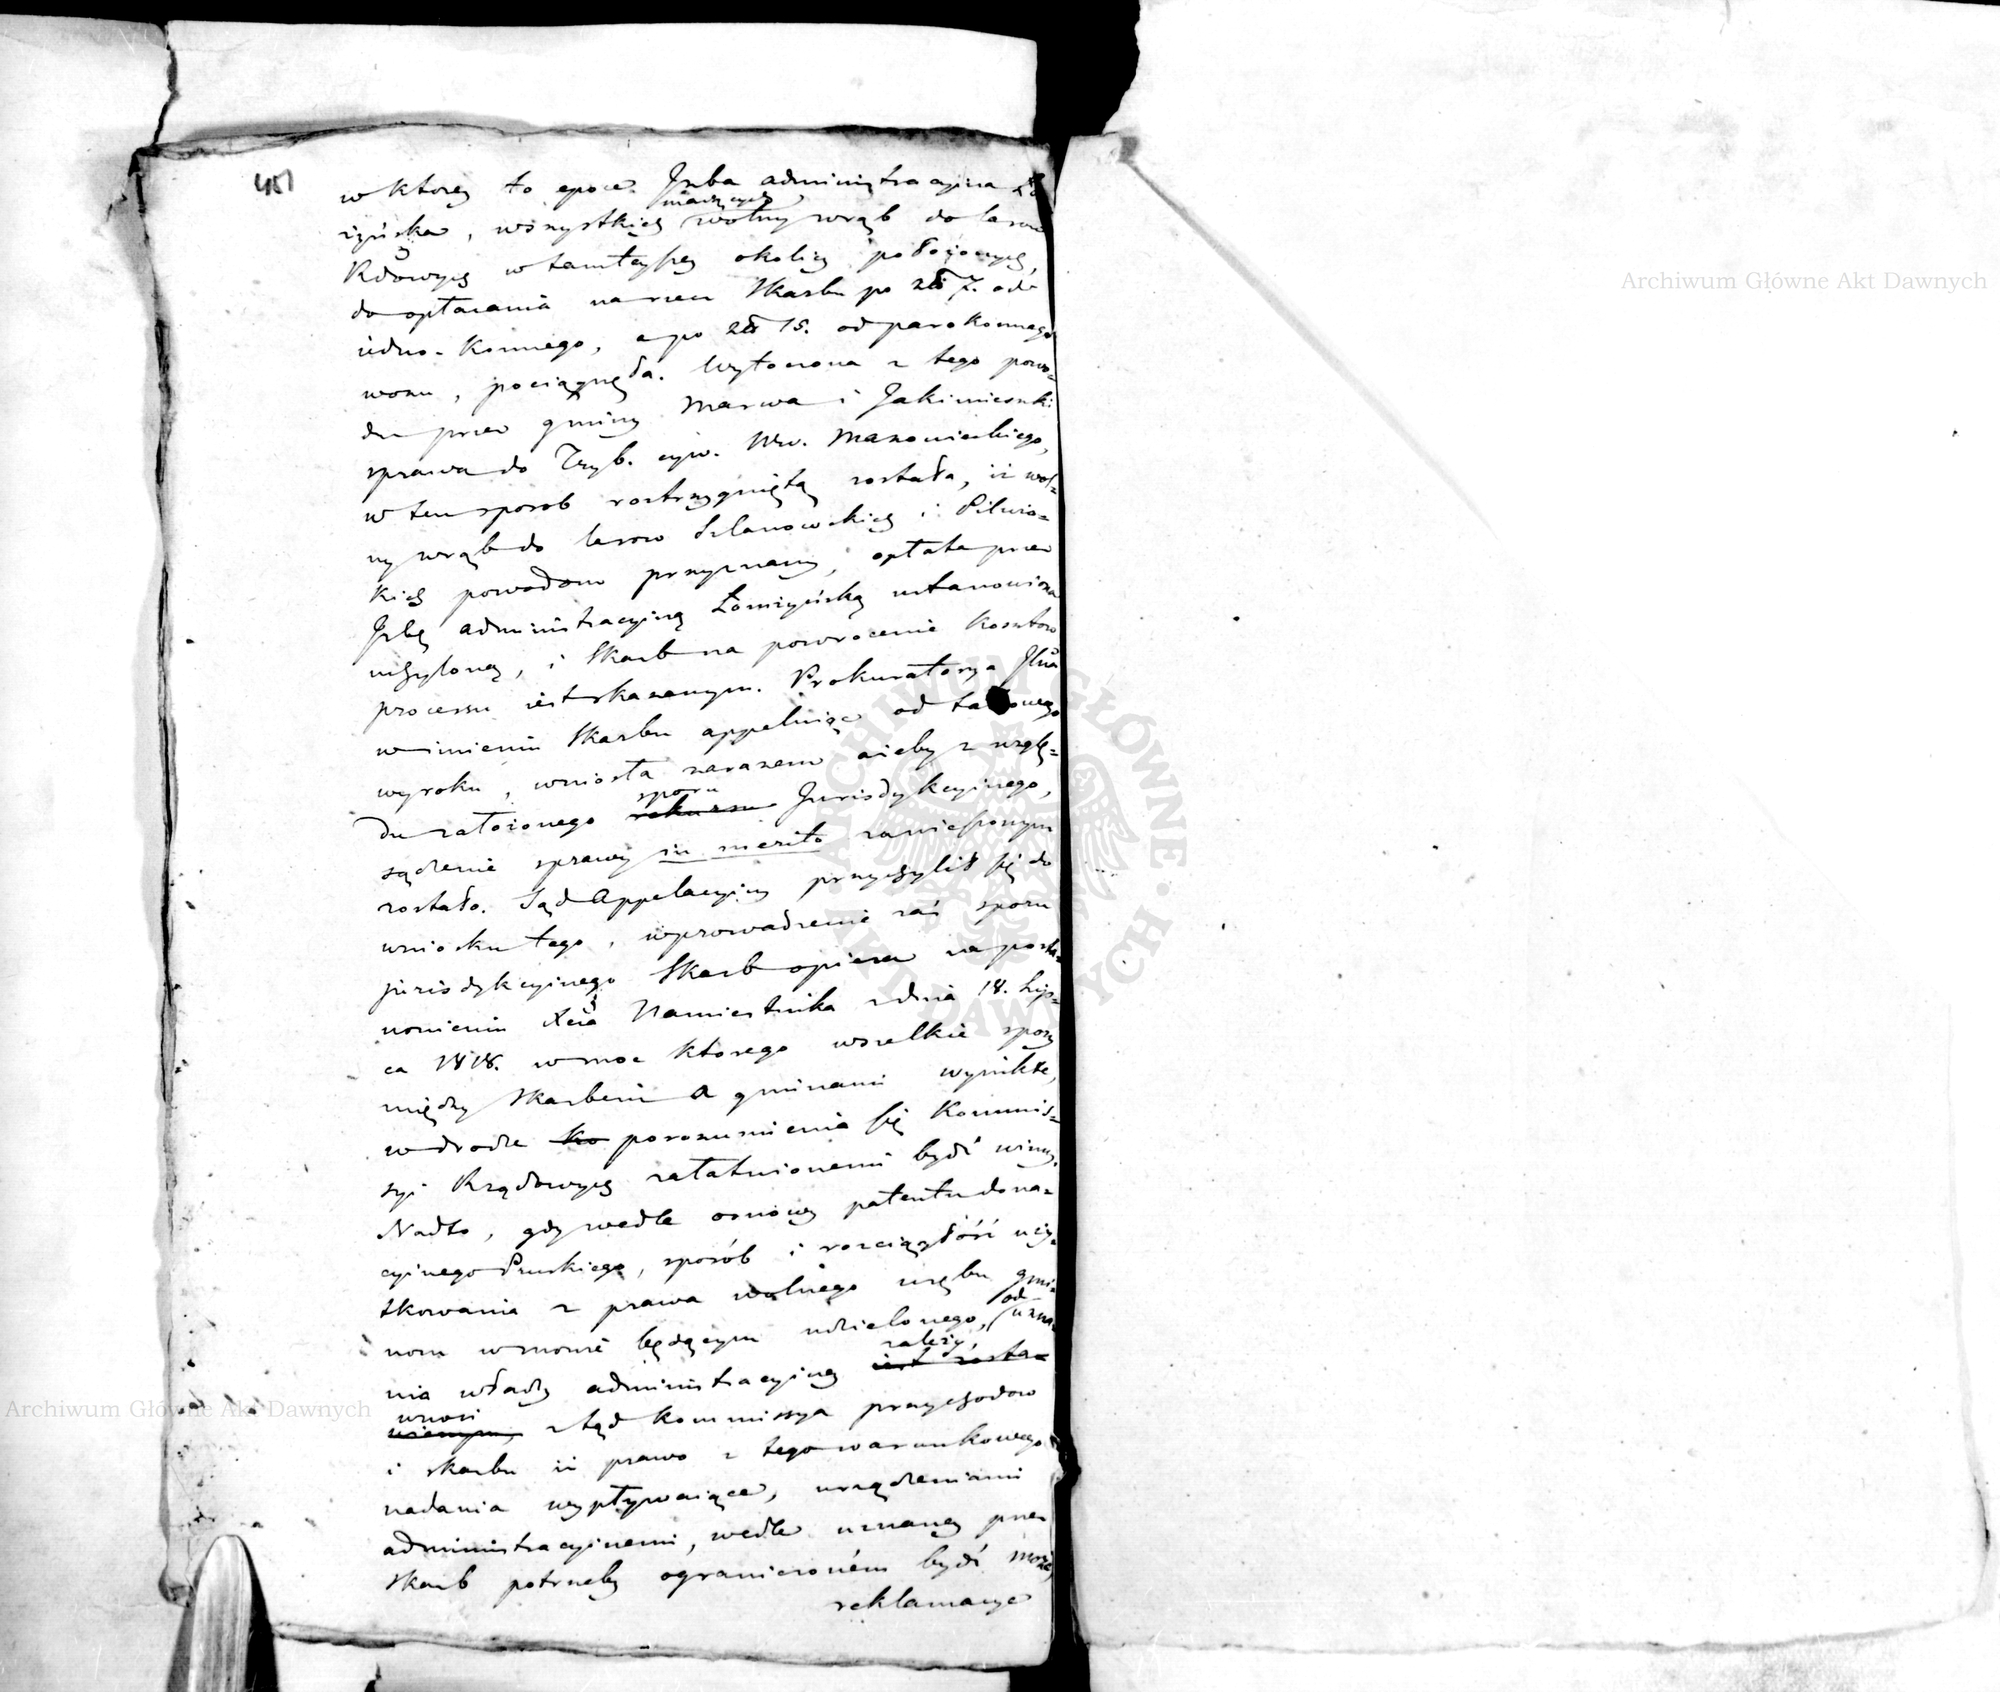 451
w ktorey to epoce. Izba administracyina Ło
żyńska, wszystkich mających wolny wrąb do lasow
Rdowych w tamteyszey okolicy położonych,
do opłacania na rzecz Skarbu po zł 7. od
iedno-konnego, a po zł 15. od parokonnego
wozu, pociągnęła. Wytoczona z tego powo=
du przez gminy Marwa i Jakimieszki
sprawa do Tryb. cyw. Ww. Mazowieckiego,
w ten sposob rostrzygniętą została, iż wol=
ny wrąb do lasow i
kich powodom przyznany, opłata przez
Izbę administracyiną Łomżyńską ustanowiona
uchyloną, i Skarb na powrocenie kosztow
processu iest skazanym. Prokuratorya Jlna
w imieniu Skarbu appelluiąc od takowego
wyroku, wniosła zarazem ażeby z wzglę=
du założonego rekursu sporu Jurisdykcyinego,
sądzenie sprawy in merito zawieszonym
zostało. Sąd Appelacyiny przychylił się do
wniosku tego, wprowadzenie zaś sporu
jurisdykcyinego Skarb opiera na posta=
nowieniu Xcia Namiestnika z dnia 18. Lip=
ca 1818. w moc ktorego wszelkie spory
między Skarbem a gminami wynikłe,
w drodze ko porozumienia się Kommis=
syi Rządowych załatwionemi bydź winny.
Nadto, gdy wedle osnowy patentu dona=
cyinego Pruskiego, sposób i rozciągłość uży=
tkowania z prawa wolnego wrębu gmi=
nom w mowie będącym udzielonego, od uzna=
nia władzy administracyiney iest zosta= zależy,
wionym wnosi ztąd Kommissya przychodow
i skarbu iż prawo z tego warunkowego
nadania wypływaiące, urządzeniami
administracyinemi, wedle uznaney przez
Skarb potrzeby ograniczoném bydź może,
reklamacye
Archiwum Główne Akt Dawnych
Archiwum Główne Akt Dawnych
ARCHIWUM GŁÓWNE AKT DAWNYCH